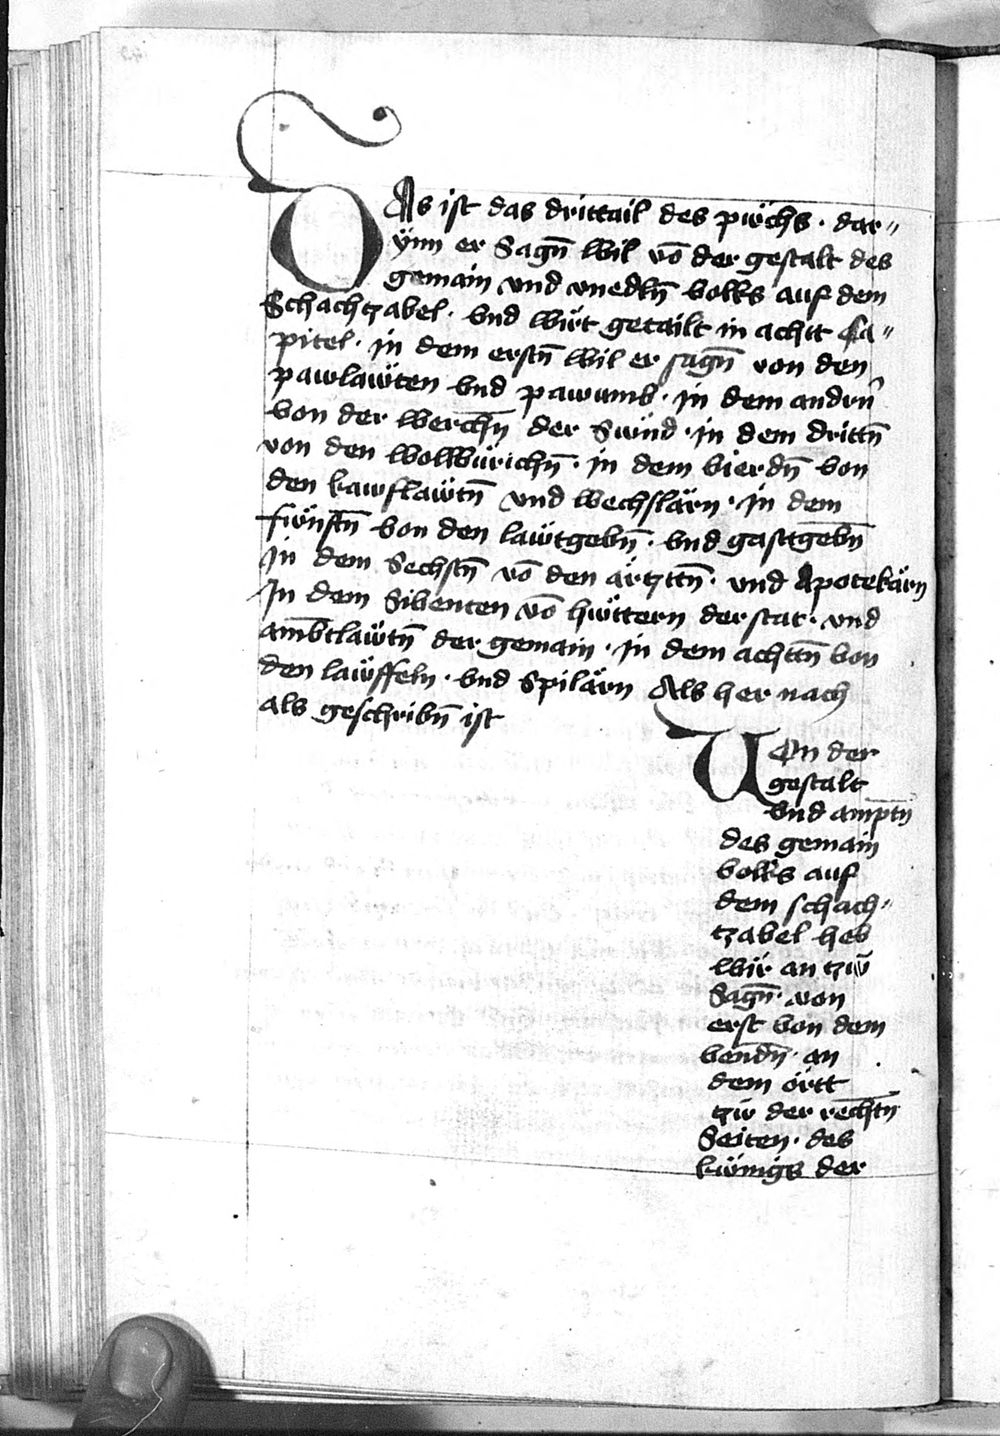 DAs ist das drittail des püchs · dar〃
ÿnn er Sagn̄ wil vō der gestalt des
gemain vnd vnedln̄ volks auf dem
Schachtzabel · vnd wirt getailt in achtt Ca〃
pitel · in dem erstn̄ wil er sagn̄ von den
pawlawten vnd pawumb · in dem andrn̄
von der werchn̄ der Smid · in dem drittn̄
von den wollwürichn̄ · in dem vierdn̄ von
den kawflawtn̄ vnd wechslärn · in dem
fünftn̄ von den läwtgebn̄ · vnd gasttgebn̄
In dem Sechstn̄ vō den ärtzttn̄ · vnd Apotekärn
In dem Sibenten vō hüttern der stat · vnd
ambtlawtn̄ der gemain · in dem achttn̄ von
den läwffeln · vnd Spilärn Als her nach
als geschribn̄ ist
VOn der
gestalt
vnd amptn̄
des gemain
volks auf
dem schach〃
tzabel heb
wir an tzw
Sagn̄ · von
erst von dem
vendn̄ · an
dem örtt
tzw der rechtn̄
Seiten · des
künigs der